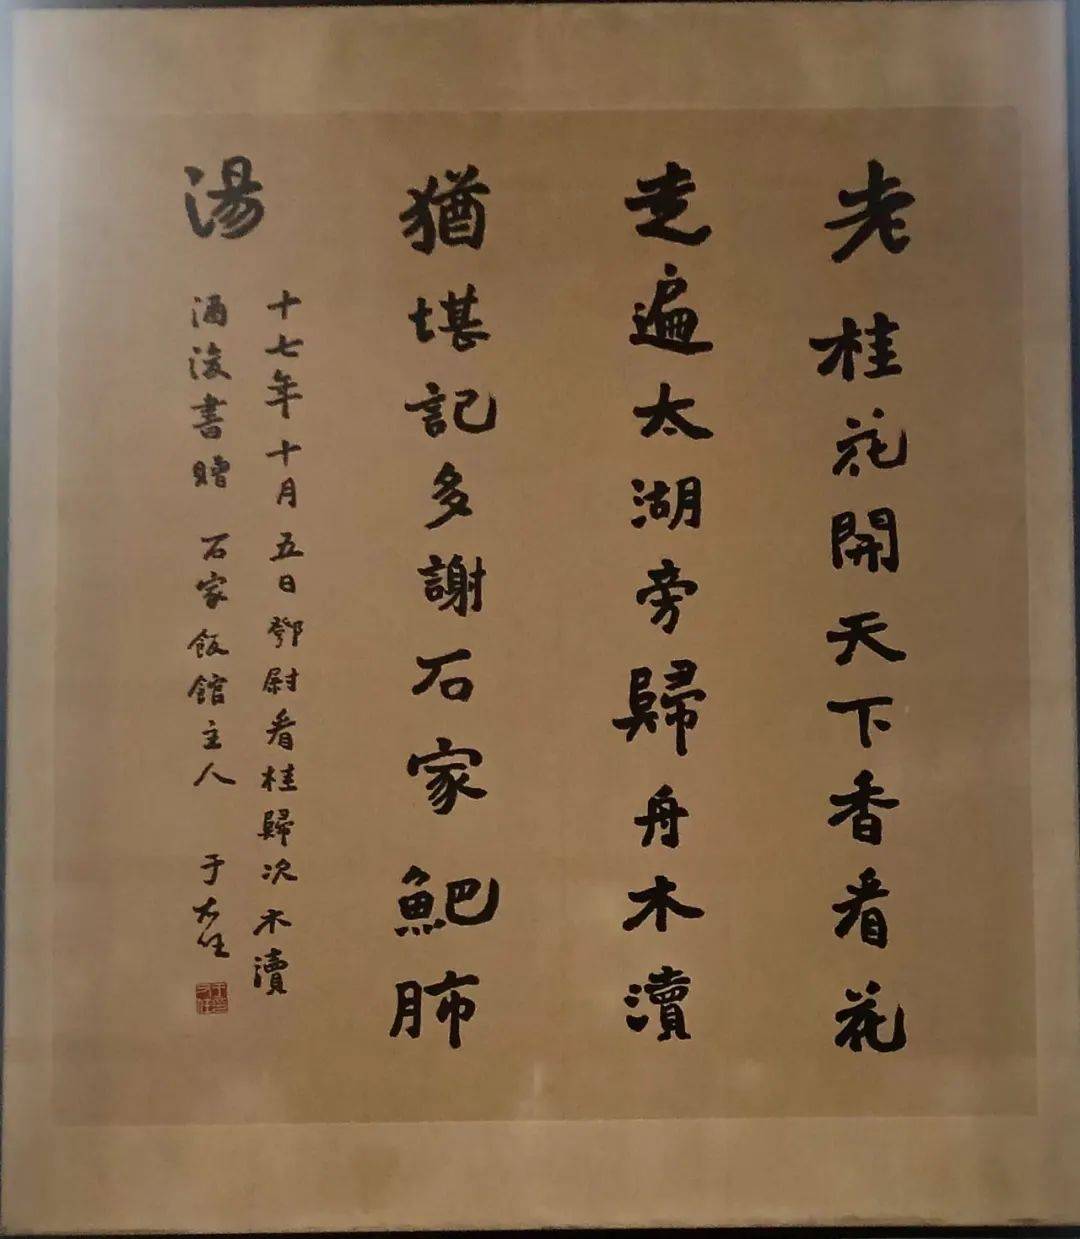 老桂花開天下香看花
走遍太湖旁歸舟木瀆
猶堪記多謝石家鲃肺
湯
十七年十月五日鄧尉看桂歸次木瀆
酒後書贈 石家飯館主人 于右任